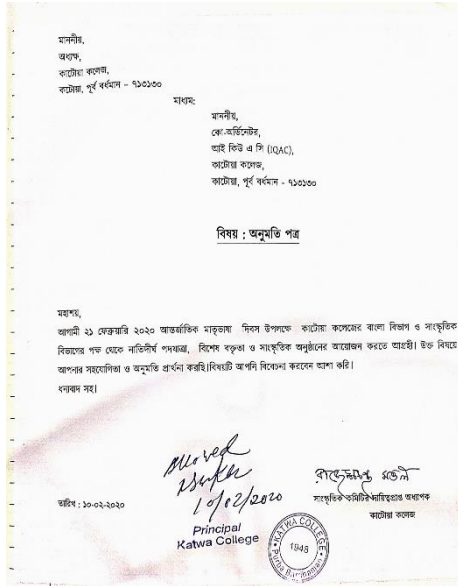 মাননীয়,
অধ্যক্ষ,
কাটোয়া কলেজ,
কাটোয়া, পূর্ব বর্ধমান – ৭১৩১৩০
মাধ্যম:
মাননীয়,
কো-অর্ডিনেটর,
আই কিউ এ সি (IQAC),
কাটোয়া কলেজ,
কাটোয়া, পূর্ব বর্ধমান – ৭১৩১৩০
বিষয় : অনুমতি পত্র
মহাশয়,
আগামী ২১ ফেব্রুয়ারি ২০২০ আন্তর্জাতিক মাতৃভাষা দিবস উপলক্ষে কাটোয়া কলেজের বাংলা বিভাগ ও সাংস্কৃতিক
বিভাগের পক্ষ থেকে নাতিদীর্ঘ পদযাত্রা, বিশেষ বক্তৃতা ও সাংস্কৃতিক অনুষ্ঠানের আয়োজন করতে আগ্রহী। উক্ত বিষয়ে
আপনার সহযোগিতা ও অনুমতি প্রার্থনা করছি।বিষয়টি আপনি বিবেচনা করবেন আশা করি।
ধন্যবাদ সহ।
তারিখ : ১০-০২-২০২০
10/02/2020
Principal
Katwa College
সাংস্কৃতিক কমিটির দায়িত্বপ্রাপ্ত অধ্যাপক
কাটোয়া কলেজ
KATWA COLLEGE
1948